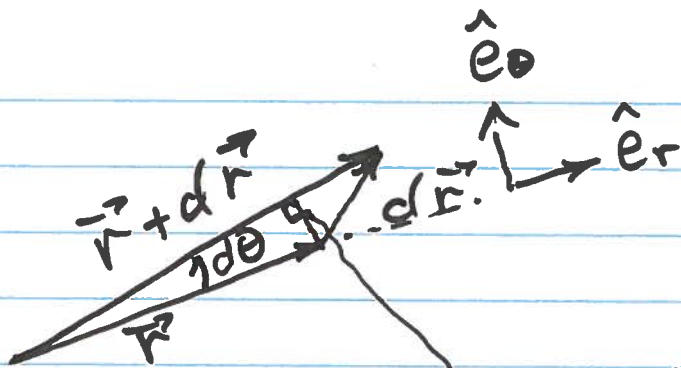 ê_θ
ê_r
r⃗ + dr⃗
dr⃗.
dθ
r⃗